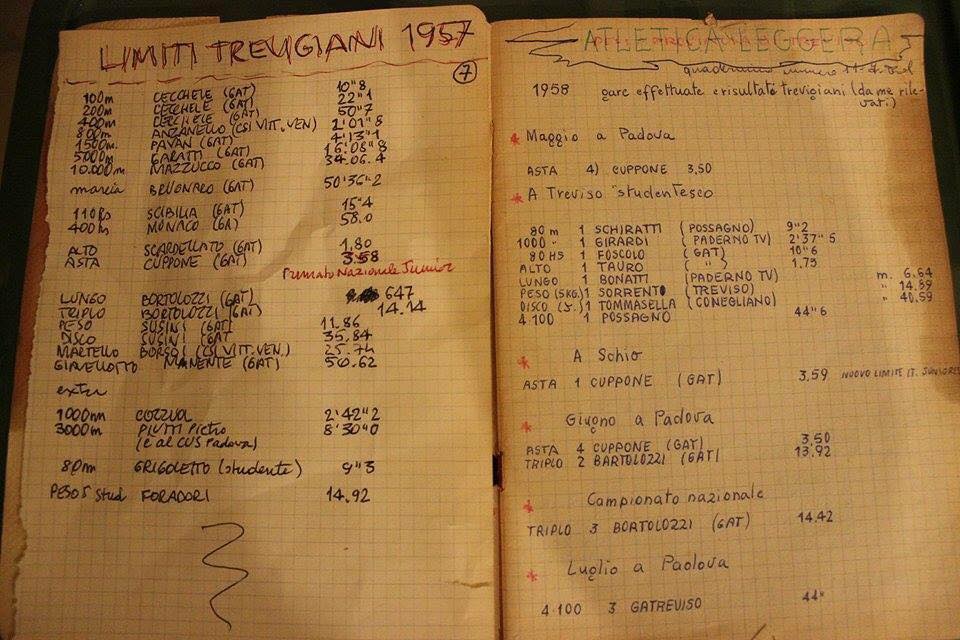 LIMITI TREVIGIANI 1957
7
100m CECCHELE (GAT) 10"8
200m CECCHELE (GAT) 22"1
400m CECCHELE (GAT) 50"7
800m ANZANELLO (CSI VITT. VEN) 2'01"8
1500m. PAVAN (GAT) 4'13"1
5000m GARATTI (GAT) 16'08"8
10.000m MAZZUCCO (GAT) 34.06.4
marcia BRUGNARO (GAT) 50'36"2
110hs SCIBILIA (GAT) 15"4
400hs MONACO (GA) 58.0
ALTO SCARDELLATO (GAT) 1,80
ASTA CUPPONE (GAT) 3.58
Primato Nazionale Junior
LUNGO BORTOLOZZI (GAT) 647
TRIPLO BORTOLOZZI (GAT) 14.14
PESO SUSINI (GAT) 11.86
DISCO SUSINI (GAT 35,84
MARTELLO BORSOI (CSI VITT. VEN.) 25.74
GIAVELLOTTO MANENTE (GAT) 50.62
extra
1000m COZZUOL 2'42"2
3000m PIUTTI Pietro 8'30"0
(è al CUS Padova)
80m GRIGOLETTO (studente) 9"3
PESO 5 Stud FORADORI 14.92
ATLETICA LEGGERA
quadernino numero
1958 gare effettuate e risultati trevigiani (da me rile-
vati.)
* Maggio a Padova
ASTA 4) CUPPONE 3,50
* A Treviso "studentesco
80 m 1 SCHIRATTI (POSSAGNO) 9"2
1000 " 1 GIRARDI (PADERNO TV) 2'37"5
80 HS 1 FOSCOLO (GAT) 10"6
ALTO 1 TAURO ( " ) 1.75
LUNGO 1 BONATTI (PADERNO TV) m. 6.64
PESO (5KG.) 1 SORRENTO (TREVISO) " 14.89
DISCO 1 TOMMASELLA (CONEGLIANO) " 40.59
4.100 1 POSSAGNO 44"6
* A Schio
ASTA 1 CUPPONE (GAT) 3,59 NUOVO LIMITE IT. JUNIORES
* Giugno a Padova
ASTA 4 CUPPONE (GAT) 3,50
TRIPLO 2 BARTOLOZZI (GAT) 13,92
* Campionato nazionale
TRIPLO 3 BORTOLOZZI (GAT) 14.42
* Luglio a Padova
4.100 3 GATREVISO 44"